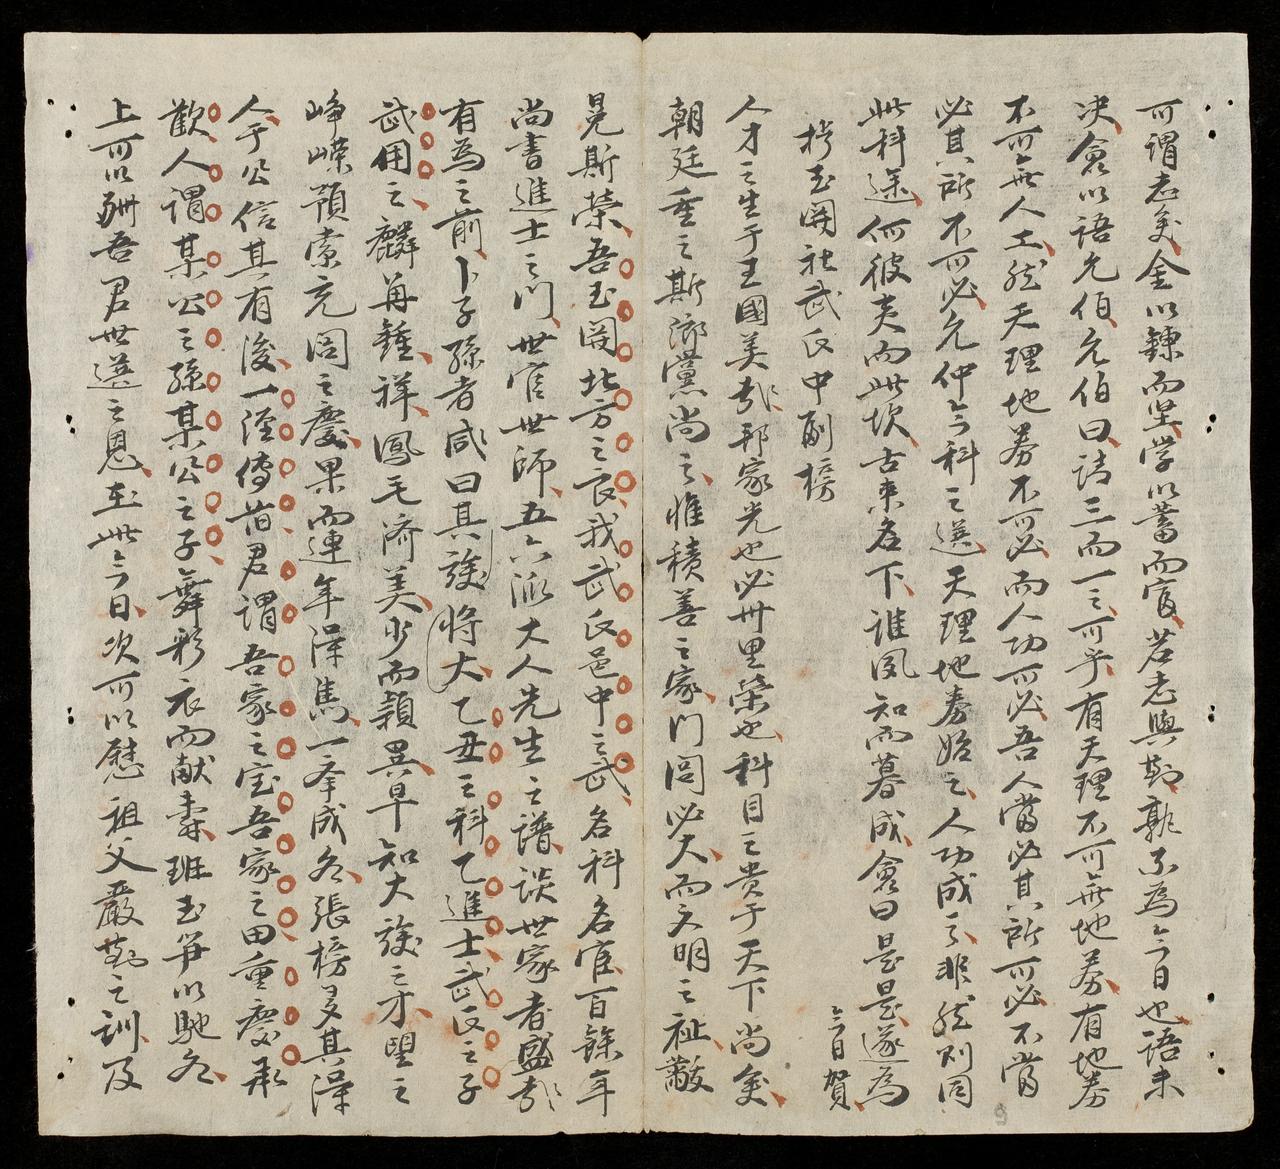 可謂志矣金以鍊而堅学以蓄而富若志與勤孰不為今日也語未
决僉以語允伯允伯曰請三而一之可乎有天理不可無地券有地券
不可無人工然天理地券不可必而人功可必吾人當必其所可必不當
必其所不可必允仲今科之選天理地券始之人功成之非然則同
此科途何彼夷而此坎古来名下誰夙知而暮成僉曰是是遂為
今日賀
拷玉関社武氏中副榜
人才之生于王國美哉邦家光也必卅里榮也科目之貴于天下尚矣
朝廷重之斯鄉黨尚之惟積善之家門閭必大而文明之祉黻
晃斯榮吾玉関北方之良我武氏邑中之武名科名宦百餘年
尚書進士之门世官世師五六派大人先生之譜談世家者盛哉
有為之前卜子孫者咸曰其族將大乙丑之科乙進士武氏之子
武用之麟再鍾祥鳳毛济美少而穎異早知大族之才望之
崢嶸預索充閭之慶果而連年澤雋一拳成名張榜多其澤
人于公信其有後一經傳昔君謂吾家之宝吾家之田重慶承
歡人謂某公之孫某公之子舞彩衣而献壽班玉笋以馳名
上可以酬吾君世選之恩在此今日次可以慰祖父嚴勤之訓及